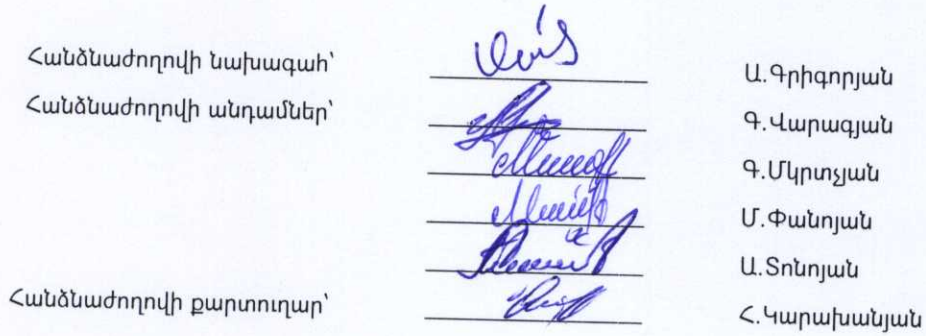 Հանձնաժողովի նախագահ՝ Ա.Գրիգորյան
Հանձնաժողովի անդամներ՝ Գ.Վարագյան
Գ.Մկրտչյան
Մ.Փանոյան
Ա.Տոնոյան
Հանձնաժողովի քարտուղար՝ Հ.Կարախանյան